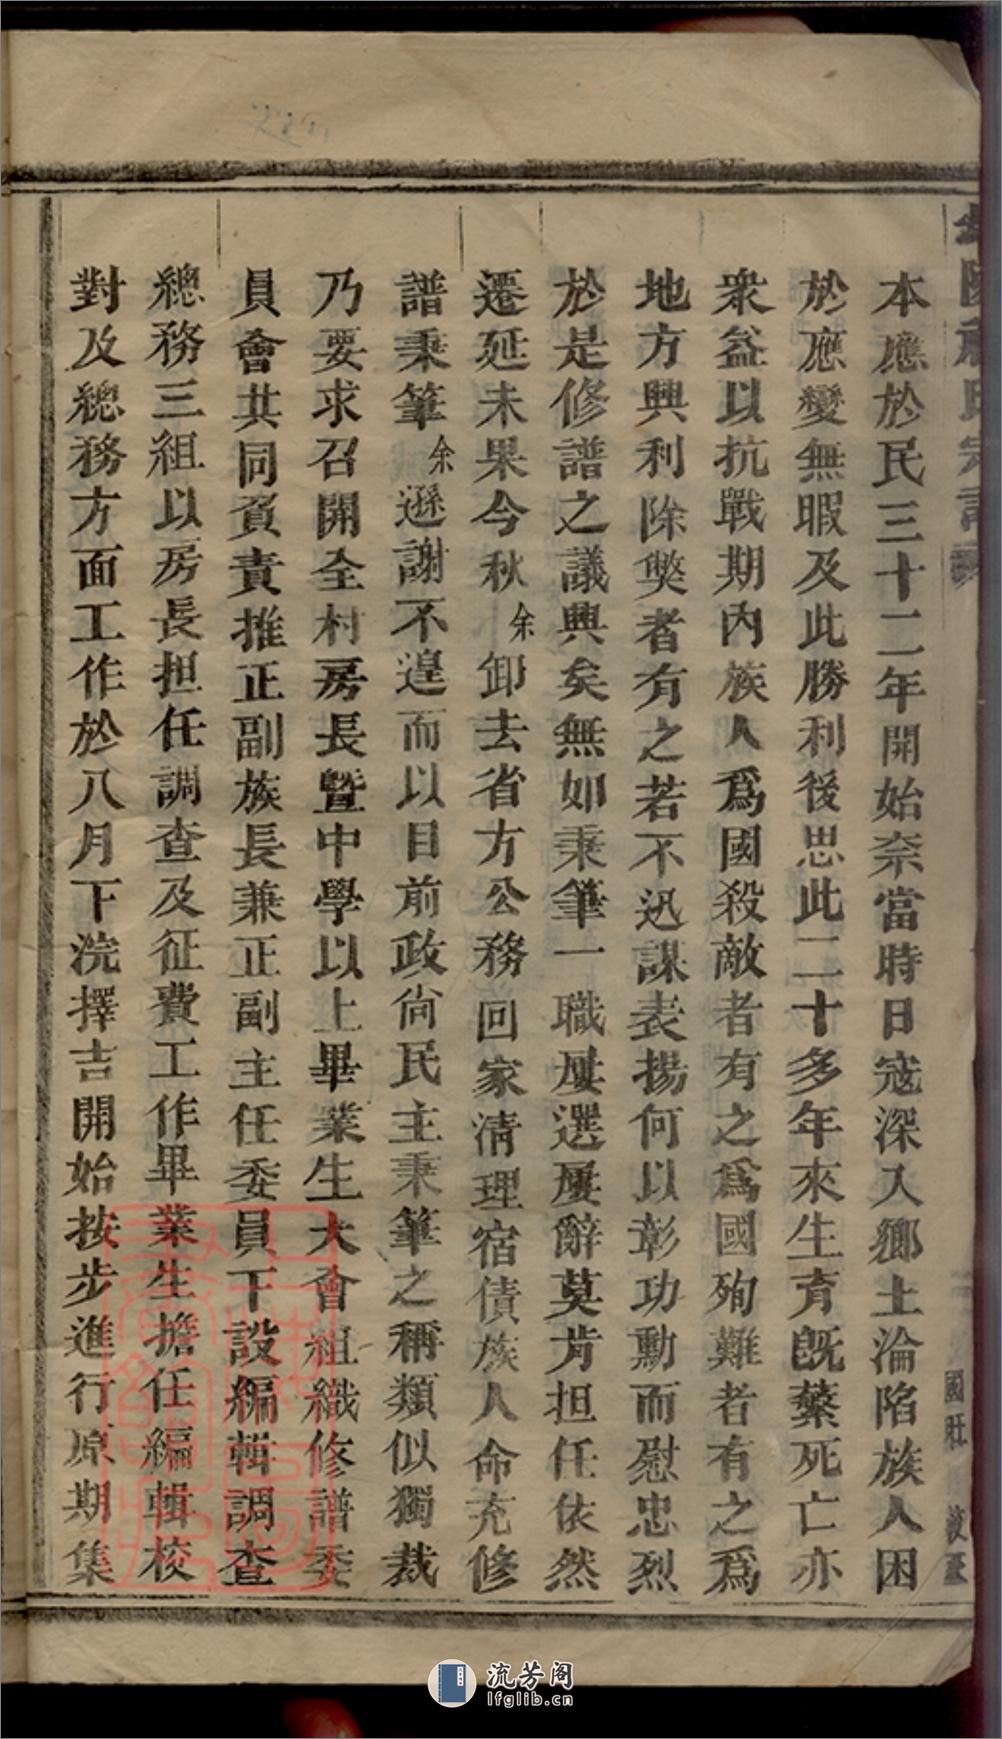 本應於民三十二年開始奈當時日寇深入鄉土淪陷族人困
於應變無暇及此勝利後思此二十多年來生育既蘩死亡亦
衆益以抗戰期內族人爲國殺敵者有之爲國殉難者有之爲
地方興利除獘者有之若不迅謀表揚何以彰功勳而慰忠烈
於是修譜之議興矣無如秉筆一職屢選屢辭莫肯担任依然
遷延未果今秋余卸去省方公務回家清理宿債族人命充修
譜秉筆余遜謝不遑而以目前政尙民主秉筆之稱類似獨裁
乃要求召開全村房長暨中學以上畢業生大會組織修譜委
員會共同負責推正副族長兼正副主任委員下設編輯調查
總務三組以房長担任調查及征費工作畢業生擔任編輯校
對及總務方面工作於八月下浣擇吉開始按步進行原期集
流芳阁
lfglib.cn